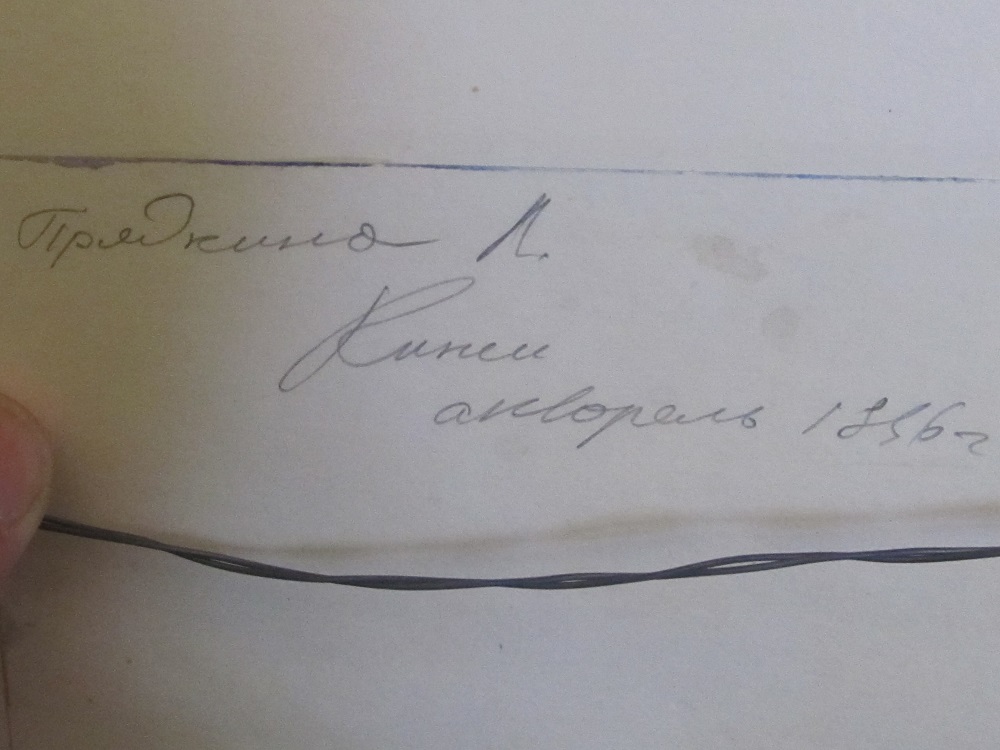 Прядкина Л.
Кижи
акварель 1996г